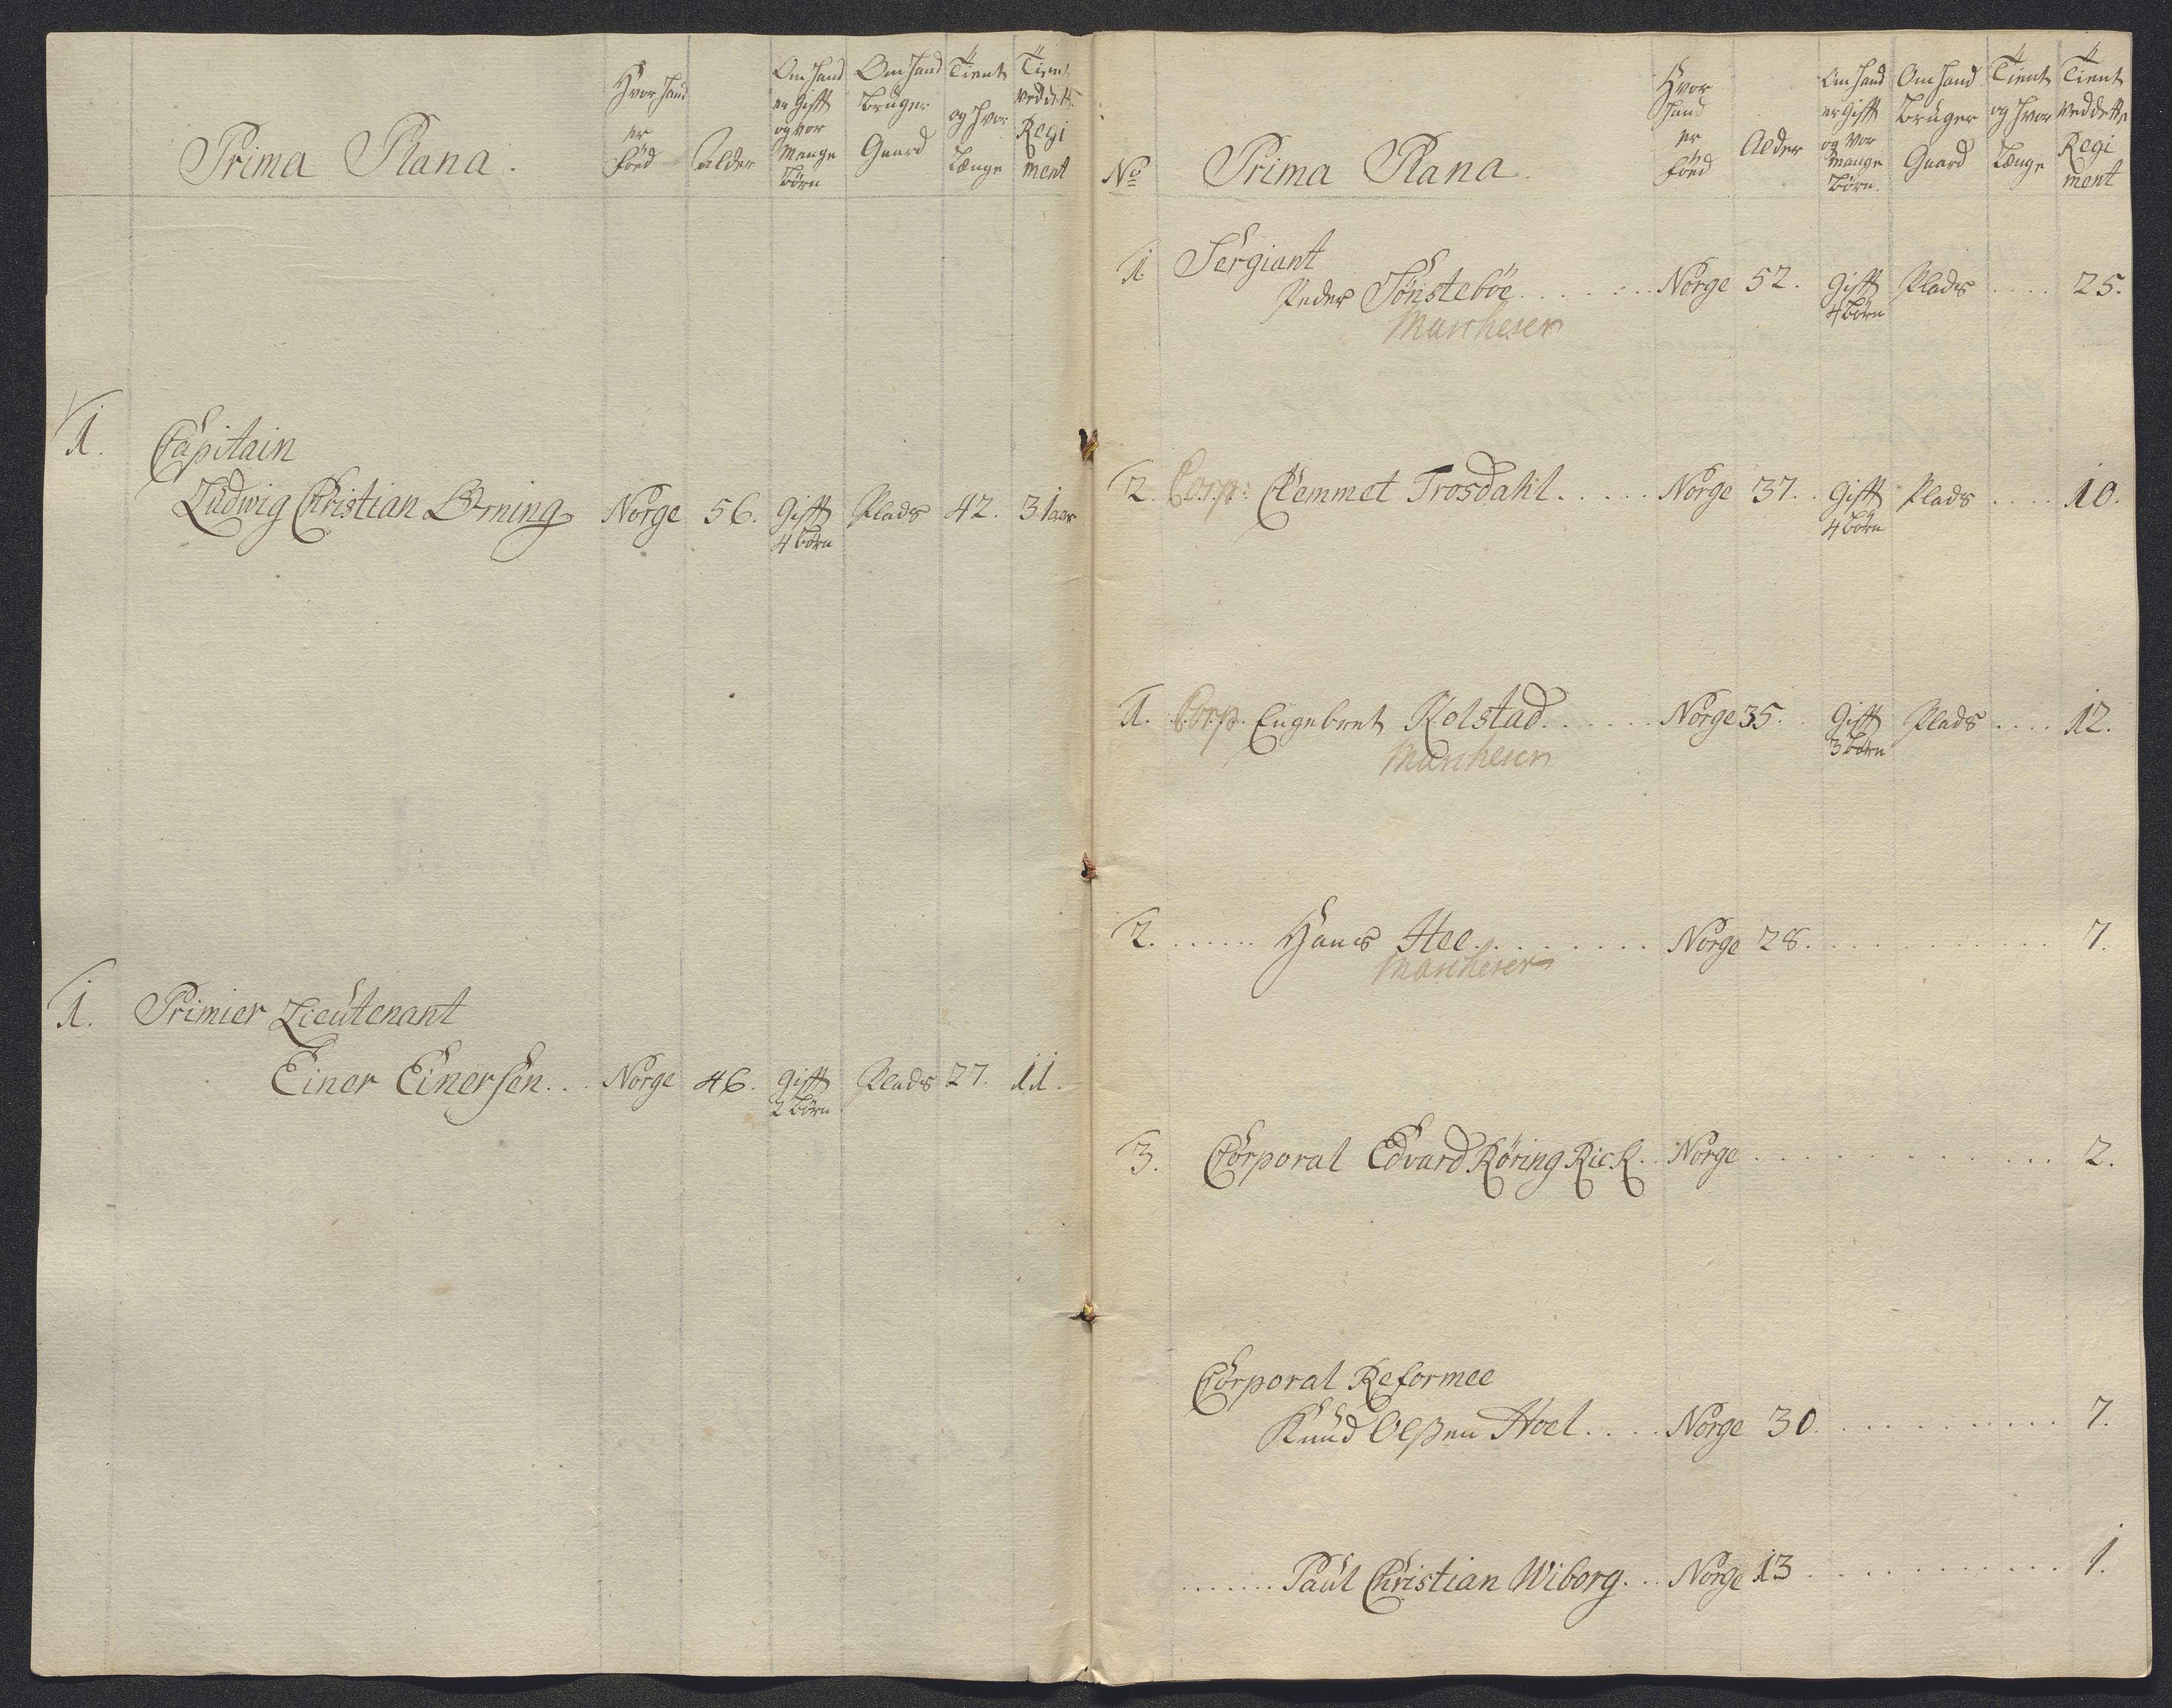 Prima Plana.
Hvor hand er Föed
Alder
Om hand er Gifft og vor Mange Börn
Om hand Bruger Gaard
Tient og hvor Længe
Tient ved dette Regi ment
1. Capitain
Ludwig Christian Ørning Norge 56. Gifft Plads 42. 31 aar
4 Börn
1. Primier Lieutenant
Einer Einersen... Norge 46. Gifft Plads 27. 11.
2 Börn
No Prima Plana.
Hvor Hand er föed
Alder
Om hand er Gifft og vor Mange Börn.
Om hand Bruger Gaard
Tient og hvor Længe
Tient ved dette Regi ment
1. Sergiant
Peder Tönsteböe...... Norge 52. Gifft Plads .... 25.
Marcherer 4 Börn
2. Corp: Clemmet Trosdahl..... Norge 37. Gifft Plads .... 10.
4 Börn
1. Corp. Engebret Kolstad...... Norge 35. Gifft Plads .... 12.
Marcherer 3 Börn
2. ...... Hans Hee........ Norge 28. ............ 7.
Marcherer
3. Corporal Edvard Röring Rick.. Norge ............ 2.
Corporal Reformee
Knud Olßen Hoel.... Norge 30. ........... 7.
....... Paul Christian Wiborg... Norge 13 ............ 1.